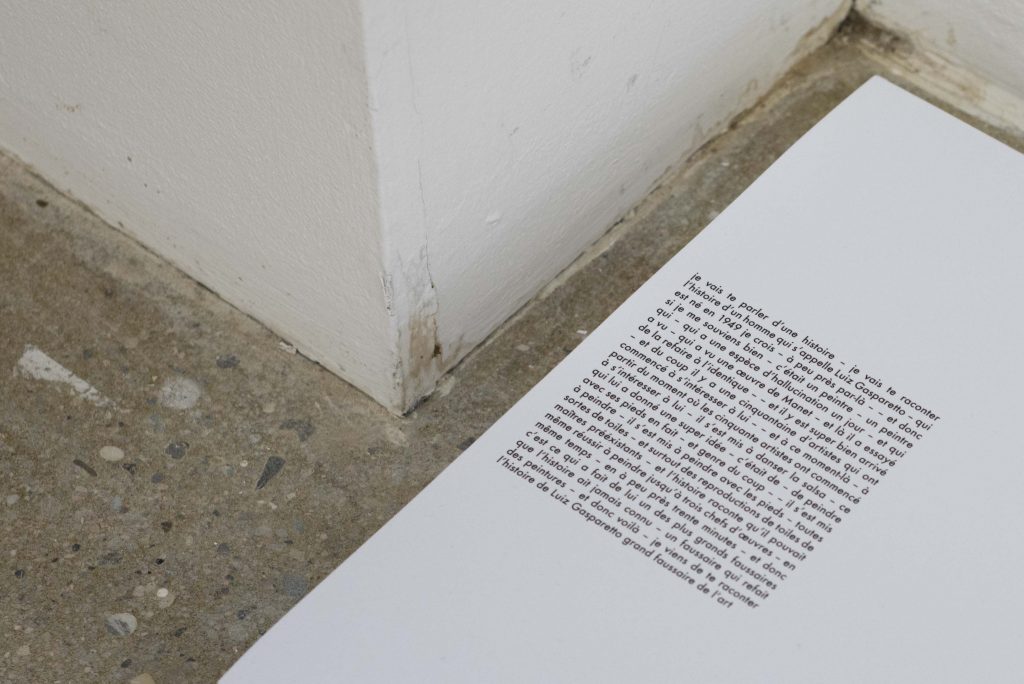 je vais te parler d'une histoire – je vais te raconter
l'histoire d'un homme qui s'appelle Luiz Gasparetto – qui
est né en 1949 je crois – à peu près par-là – – et donc
si je me souviens bien – c'était un peintre – un peintre
qui – qui a une espèce d'hallucination un jour – et qui
a vu – qui a vu une œuvre de Monet – et là il a essayé
de la refaire à l'identique – – et il y est super bien arrivé
– et du coup il y a une cinquantaine d'artistes qui ont
commencé à s'intéresser à lui – – et à ce moment-là – à
partir du moment où les cinquante artistes ont commencé
à s'intéresser à lui – il s'est mis à danser la salsa – ce
qui lui a donné une super idée – c'était de – de peindre
avec ses pieds en fait – et genre du coup – il s'est mis
à peindre – il s'est mis à peindre avec les pieds – toutes
sortes de toiles – et surtout des reproductions de toiles de
maîtres préexistants – et l'histoire raconte qu'il pouvait
même réussir à peindre jusqu'à trois chefs d'œuvres – en
même temps – en à peu près trente minutes – et donc
c'est ce qui a fait de lui un des plus grands faussaires
que l'histoire ait jamais connu – un faussaire qui refait
des peintures – et donc voilà – je viens de te raconter
l'histoire de Luiz Gasparetto grand faussaire de l'art